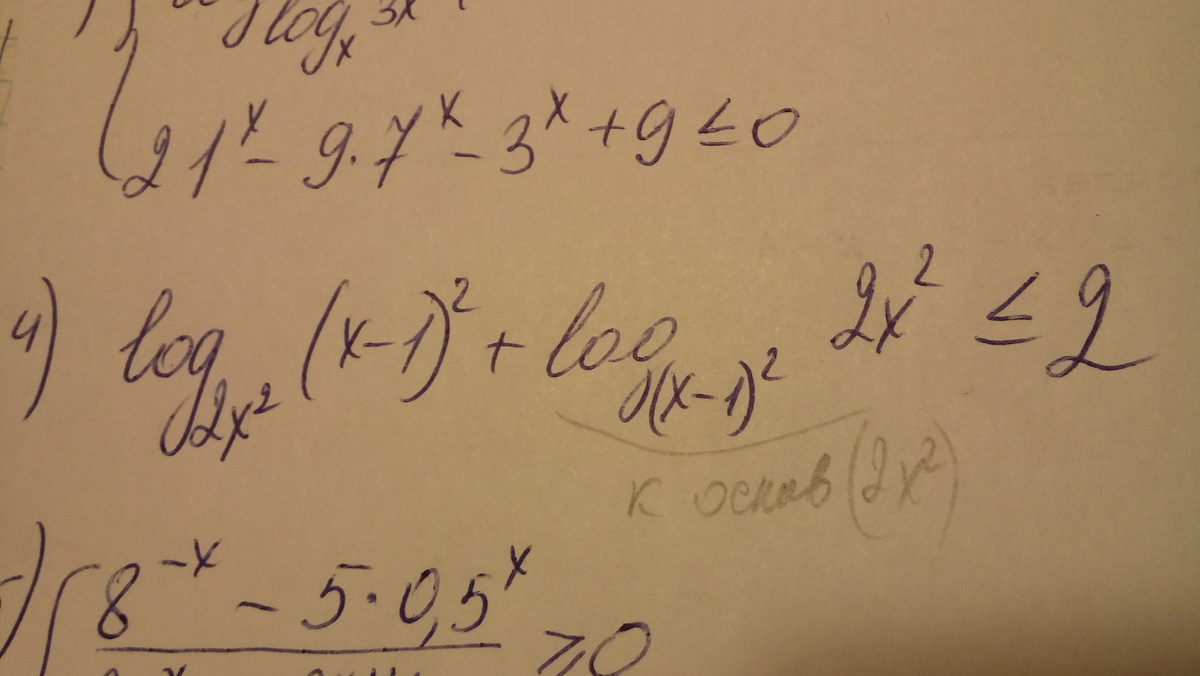 log_x 3x
21^x - 9·7^x - 3^x + 9 ≤ 0
4) log_{2x^2} (x-1)^2 + log_{(x-1)^2} 2x^2 ≤ 2
к основ (2x^2)
8^{-x} - 5·0,5^x
≥ 0